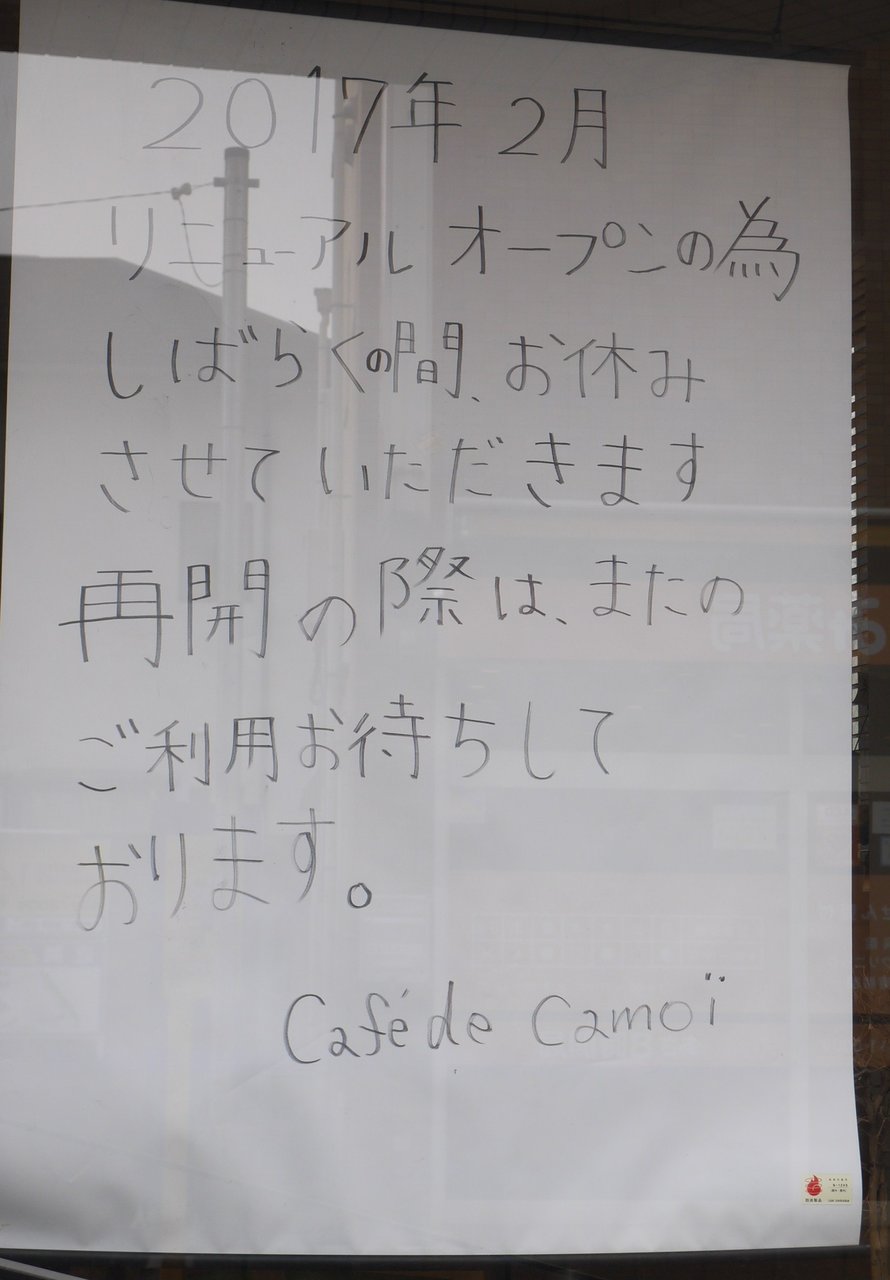 2017年 2月
リニューアル オープンの為
しばらくの間、お休み
させていただきます
再開の際は、またの
ご利用お待ちして
おります。
Café de Camoï